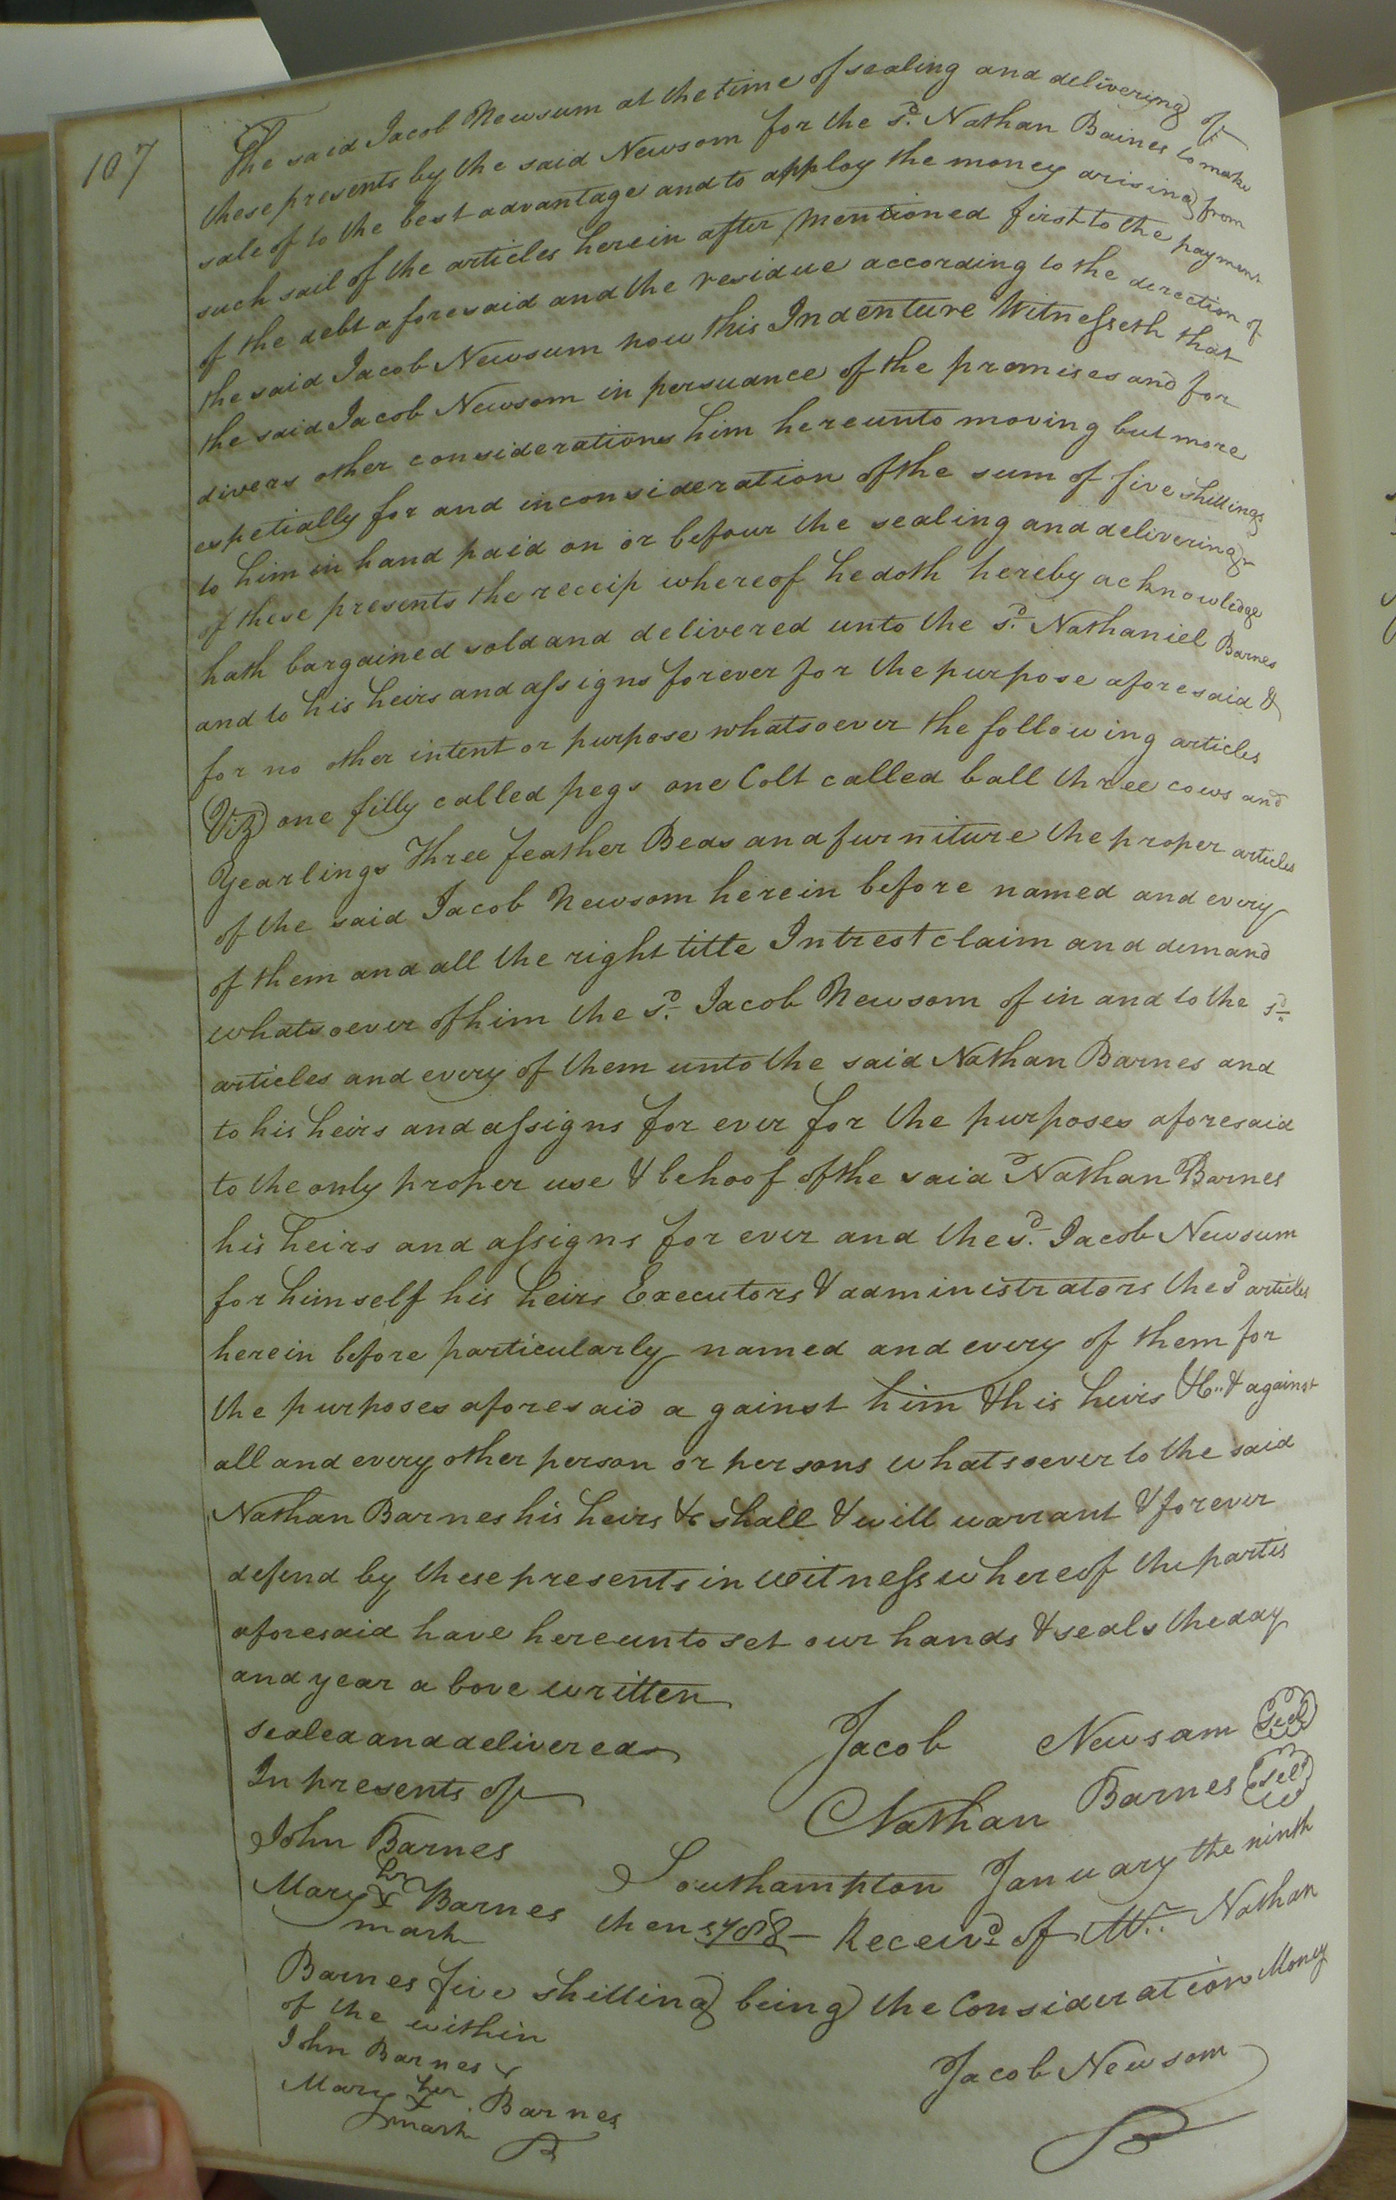 107
The said Jacob Newsum at the time of sealing and delivering of
these presents by the said Newsom for the sd. Nathan Baines to make
sale of to the best advantage and to apploy the money arising from
such sail of the articles herein after mentioned first to the payment
of the debt aforesaid and the residue according to the direction of
the said Jacob Newsum now this Indenture Witnesseth that
the said Jacob Newsom in persuance of the promises and for
divers other considerations him hereunto moving but more
espetially for and in consideration of the sum of five shillings
to him in hand paid on or befour the sealing and delivering
of these presents the receip whereof he doth hereby acknowledge
hath bargained sold and delivered unto the sd. Nathaniel Barnes
and to his heirs and assigns forever for the purpose aforesaid &
for no other intent or purpose whatsoever the following articles
(Viz) one filly called pegs one Colt called ball three cows and
Yearlings Three feather Beds and furniture the proper articles
of the said Jacob Newsom herein before named and every
of them and all the right title Intrest claim and demand
whatsoever of him the sd. Jacob Newsom of in and to the sd.
articles and every of them unto the said Nathan Barnes and
to his heirs and assigns for ever for the purposes aforesaid
to the only proper use & behoof of the said Nathan Barnes
his heirs and assigns for ever and the sd. Jacob Newsum
for himself his heirs Executors & administrators the sd articles
herein before particularly named and every of them for
the purposes aforesaid a gainst him & his heirs &c. & against
all and every other person or persons whatsoever to the said
Nathan Barnes his heirs &c shall & will warrant & forever
defend by these presents in witness whereof the partis
aforesaid have hereunto set our hands & seals the day
and year a bove written
sealed and delivered
In presents of
Jacob Newsam Seal
Nathan Barnes Seal
John Barnes
her
Mary X Barnes
mark
Southampton January the ninth
then 1788 - Receivd of Mr. Nathan
Barnes five shilling being the Consideration Money
of the within
John Barnes
Mary her X Barnes
mark
Jacob Newsom